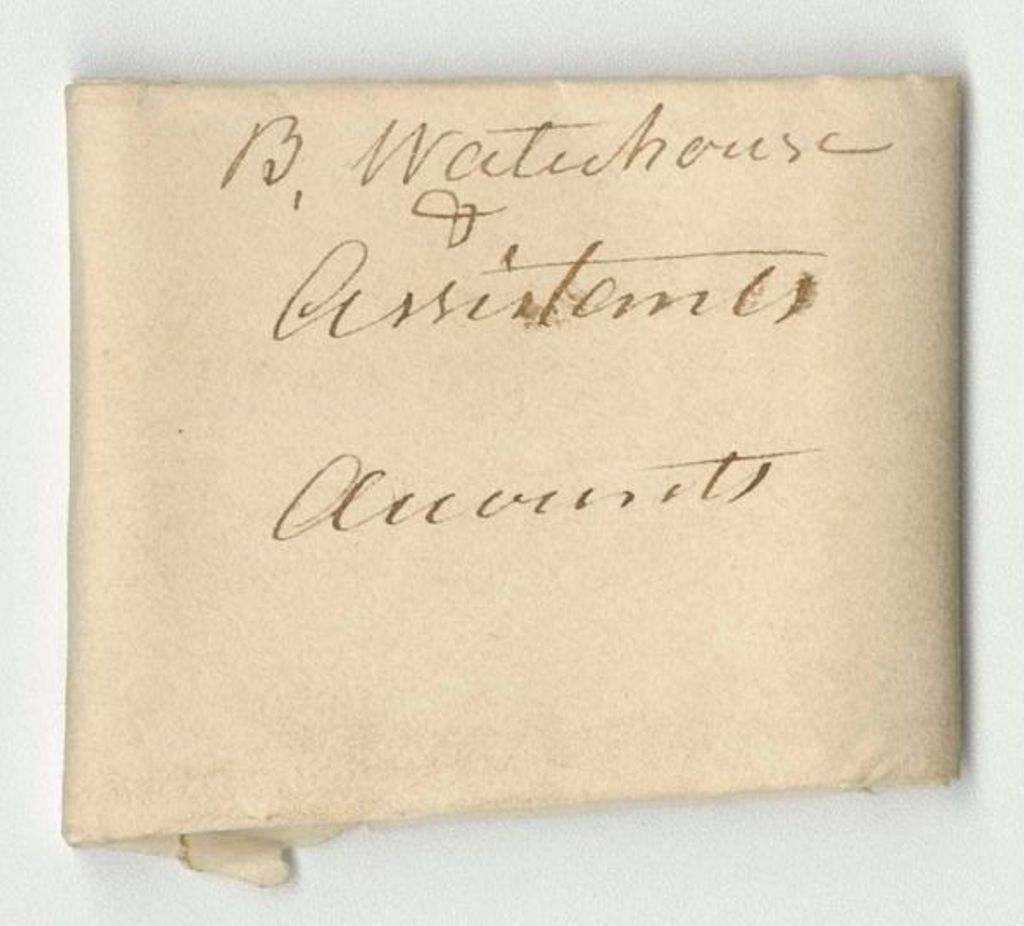 B. Waterhouse
&
Assistants
Accounts